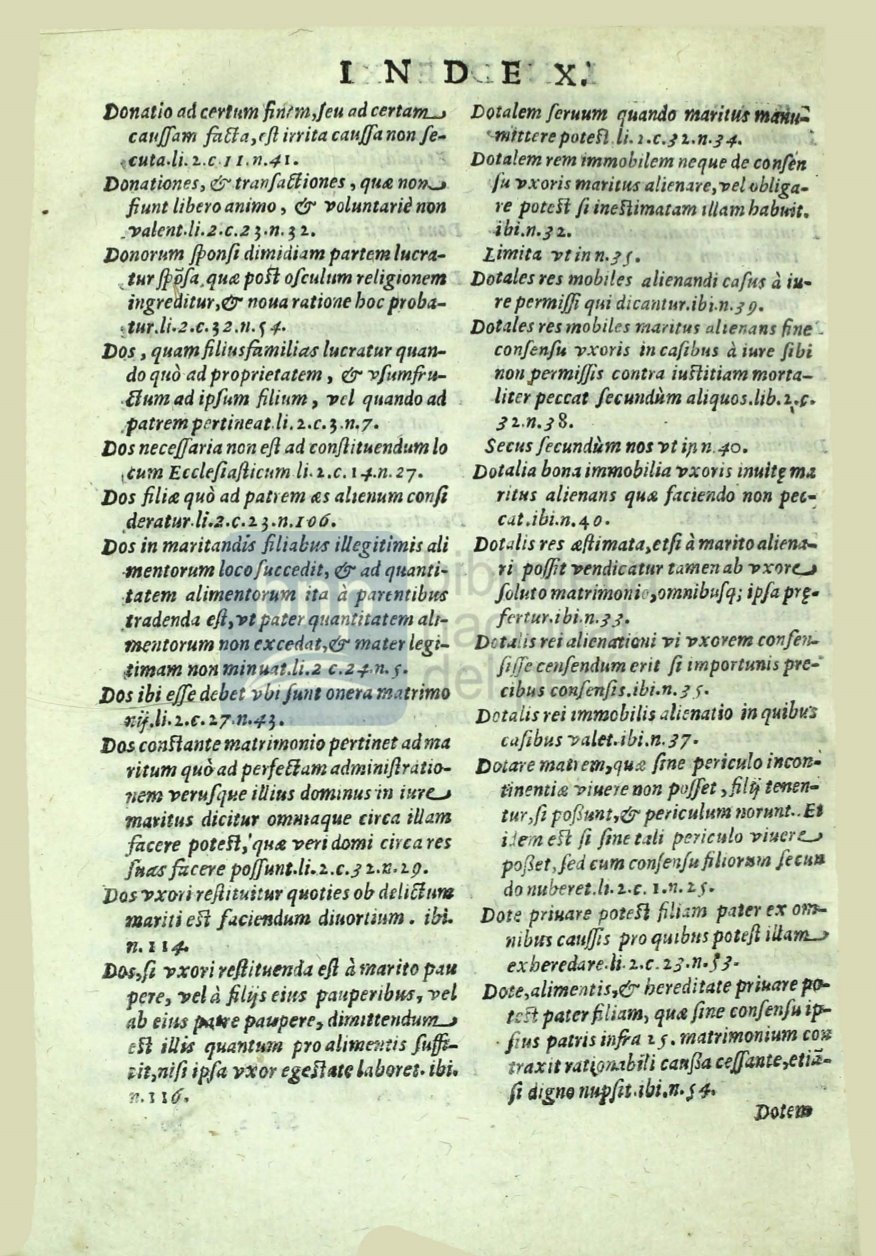 INDEX.
Donatio ad certum finem, ſeu ad certam
cauſſam facta, eſt irrita cauſſa non ſe-
cuta.li.2.c.11.n.41.
Donationes, & tranſactiones, quæ non
fiunt libero animo, & voluntariè non
valent.li.2.c.23.n.32.
Donorum ſponſi dimidiam partem lucra-
tur ſpōſa quæ poſt oſculum religionem
ingreditur, & noua ratione hoc proba-
tur.li.2.c.32.n.54.
Dos, quam filiusfamilias lucratur quan-
do quò ad proprietatem, & vſumfru-
ctum ad ipſum filium, vel quando ad
patrem pertineat li.2.c.3.n.7.
Dos neceſſaria non eſt ad conſtituendum lo
cum Eccleſiaſticum li.2.c.14.n.27.
Dos filiæ quò ad patrem æs alienum conſi
deratur.li.2.c.23.n.106.
Dos in maritandis filiabus illegitimis ali
mentorum loco ſuccedit, & ad quanti-
tatem alimentorum ita à parentibus
tradenda eſt, vt pater quantitatem ali-
mentorum non excedat, & mater legi-
timam non minuat.li.2 c.24.n.5.
Dos ibi eſſe debet vbi ſunt onera matrimo
nij.li.2.c.27.n.43.
Dos conſtante matrimonio pertinet ad ma
ritum quò ad perfectam adminiſtratio-
nem veruſque illius dominus in iure
maritus dicitur omniaque circa illam
facere poteſt, quæ veri domi circa res
ſuas facere poſſunt.li.2.c.32.n.29.
Dos vxori reſtituitur quoties ob delictum
mariti eſt faciendum diuortium. ibi.
n.114.
Dos, ſi vxori reſtituenda eſt à marito pau
pere, vel à filijs eius pauperibus, vel
ab eius patre paupere, dimittendum
eſt illis quantum pro alimentis ſuffi-
cit, niſi ipſa vxor egeſtate laboret. ibi.
n.116.
Dotalem ſeruum quando maritus manu-
mittere poteſt li.2.c.32.n.34.
Dotalem rem immobilem neque de conſen
ſu vxoris maritus alienare, vel obliga-
re poteſt ſi ineſtimatam illam habuit.
ibi.n.32.
Limita vt in n.35.
Dotales res mobiles alienandi caſus à iu-
re permiſſi qui dicantur.ibi.n.39.
Dotales res mobiles maritus alienans ſine
conſenſu vxoris in caſibus à iure ſibi
non permiſſis contra iuſtitiam morta-
liter peccat ſecundùm aliquos.lib.2.c.
32.n.38.
Secus ſecundùm nos vt in n.40.
Dotalia bona immobilia vxoris inuitę ma
ritus alienans quæ faciendo non pec-
cat.ibi.n.40.
Dotalis res æſtimata, etſi à marito aliena-
ri poſſit vendicatur tamen ab vxore
ſoluto matrimonio, omnibuſq; ipſa prę-
fertur.ibi.n.33.
Dotalis rei alienationi vi vxorem conſen-
ſiſſe cenſendum erit ſi importunis pre-
cibus conſenſis.ibi.n.35.
Dotalis rei immobilis alienatio in quibus
caſibus valet.ibi.n.37.
Dotare matrem, quæ ſine periculo incon-
tinentiæ viuere non poſſet, filij tenen-
tur, ſi poßunt, & periculum norunt. Et
idem eſt ſi ſine tali periculo viuere
poßet, ſed cum conſenſu filiorum ſecun
do nuberet.li.2.c.1.n.25.
Dote priuare poteſt filiam pater ex om-
nibus cauſſis pro quibus poteſt illam
exheredare.li.2.c.23.n.53.
Dote, alimentis, & hereditate priuare po-
teſt pater filiam, quæ ſine conſenſu ip-
ſius patris infra 25. matrimonium con
traxit rationabili caußa ceſſante, etiā-
ſi digno nupſit.ibi.n.54.
Dotem